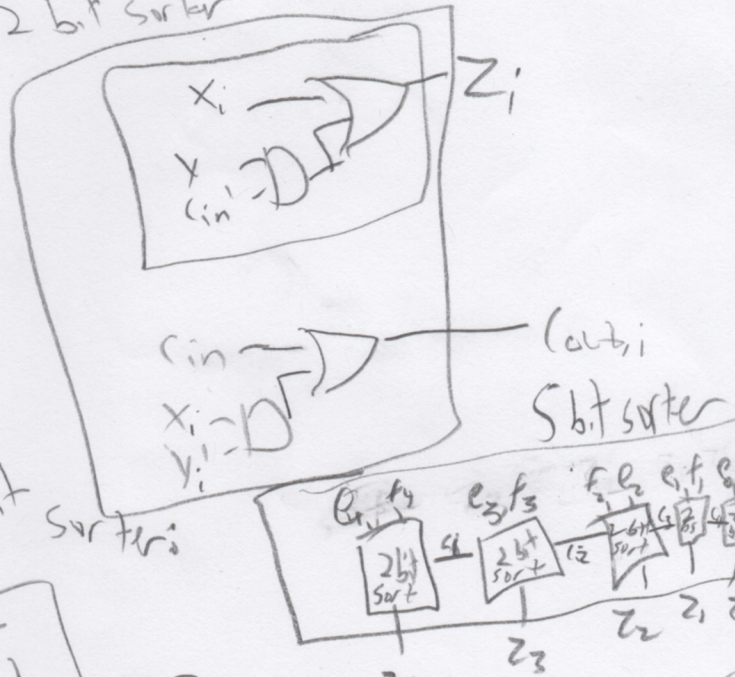 2 bit sorter
Xi
Zi
Y
Cin'
Cin
Cout,i
Xi
Yi'
5 bit sorter
sorter:
e4, f4
e3, f3
f2, e2
e1, f1
2 bit sort
c4
2 bit sort
c2
sort
Z3
Z2
Z1